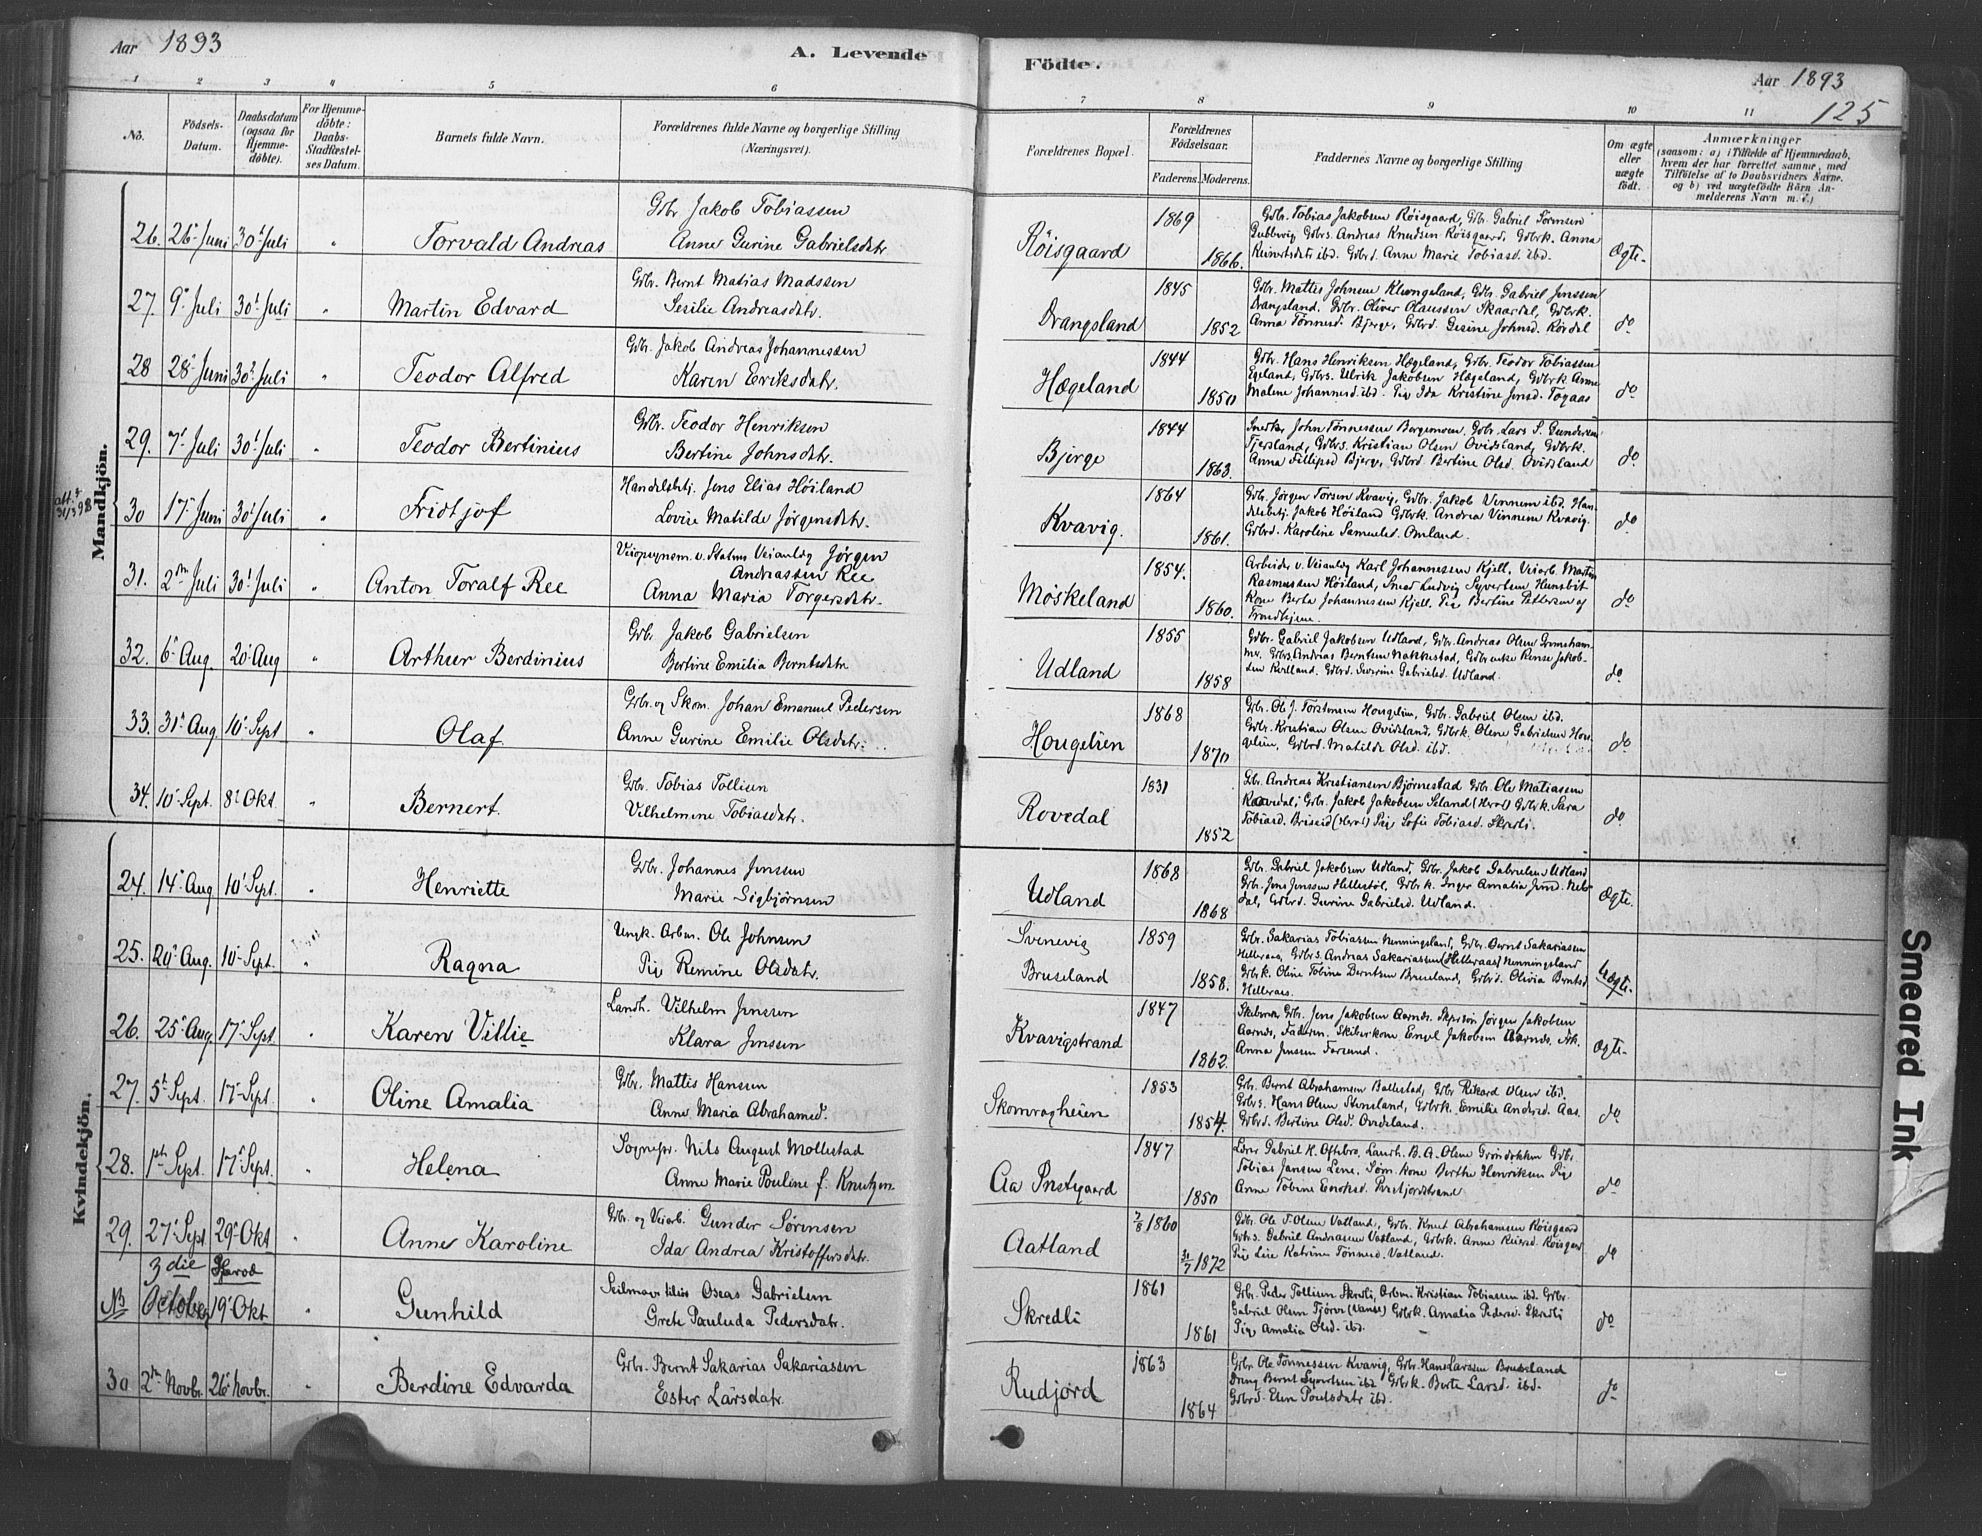 Aar 1893
A. Levende
Födte.
Aar 1893
125
1 2 3 4 5 6 7 8 9 10 11
No.
Födsels-Datum.
Daabsdatum (ogsaa for Hjemme-döbte).
For Hjemme-döbte: Daabs-Stadfæstel-ses Datum.
Barnets fulde Navn.
Forældrenes fulde Navne og borgerlige Stilling (Næringsvei).
Forældrenes Bopæl.
Forældrenes Födselsaar.
Faderens. Moderens.
Faddernes Navne og borgerlige Stilling
Om ægte eller uægte födt.
Anmærkninger
(saasom: a) i Tilfælde af Hjemmedaab, hvem der har forrettet samme, med Tilföielse af to Daabsvidners Navne. og b) ved uægtefödte Börn An-melderens Navn m. v.)
Mandkjön.
26. 26 Juni 30 Juli " Torvald Andreas
Gbr. Jakob Tobiassen
Anne Gurine Gabrielsdtr.
Röisgaard 1869 1866.
Gbr. Tobias Jakobsen Röisgaard, Gbr. Gabriel
Gdbrs. Andreas Knudsen Röisgaard, Gdbrk. Anna
ibd. Gdbrd. Anne Marie Tobiasd. ibd.
Ægte.
27. 9 Juli 30 Juli " Martin Edvard
Gbr. Bernt Matias Madssen
Sesilie Andreasdtr.
Drangsland 1845 1852
Gbr. Mattis Johnsen Klungeland, Gbr. Gabriel Jenssen
Drangsland. Gbr. Oliver Olaussen Skaardal, Gdbrk.
Anna Tönnesd. Bjerge, Gdbrd. Gesine Johnsd. Rördal
do
28 28 Juni 30 Juli " Teodor Alfred
Gbr. Jakob Andreas Johannessen
Karen Eriksdatr.
Hægeland 1844 1850
Gbr. Hans Henriksen Hægeland, Gbr. Teodor Tobiassen
Egeland, Gdbrs. Ulrik Jakobsen Hægeland, Gdbrk Anne
Malene Johannesd. ibd. Pig Ida Kristine Jensd.
do
29. 7 Juli 30 Juli " Teodor Bertinius
Gbr. Teodor Henriksen
Bertine Johnsdtr.
Bjerge 1844 1863.
John Tönnessen Borgemoen, Gbr. Lars S. Gundersen
Gdbrs. Kristian Olsen Ovidsland, Gdbrk.
Anna Fillipsd Bjerge, Gdbrd Bertine Olsd. Ovidsland
do
30 17 Juni 30 Juli " Fridtjof
Handelsbtj. Jens Elias Höiland
Lovise Matilde Jörgensdtr.
Kvavig. 1864 1861.
Gbr. Jörgen Torsen Kvavig, Gbr. Jakob Vinnem ibd. Han-
delsbetj. Jakob Höiland Gdbrk. Andrea Vinnem Kvavig.
Gdbrd. Karoline Samuelsd. Omland.
do
31. 2 Juli 30 Juli " Anton Toralf Ree
v. Statens Veianlæg Jörgen
Andreassen Ree
Anna Maria Torgersdtr.
Möskeland 1854. 1860.
Arbeider v. Veianlæg Karl Johannessen Kjell, Veiarb. Martin
Rasmussen Höiland, Ludvig Syvertsen
Kone Berte Johannessen Kjell. Pig Bertine Pettersen af
Trondhjem.
do
32. 6 Aug. 20 Aug " Arthur Berdinius
Gbr. Jakob Gabrielsen
Bertine Emilia Berntsdtr.
Udland 1855 1858
Gbr. Gabriel Jakobsen Udland, Gbr. Andreas Olsen
Gdbrs Andreas Berntsen
Gdbrd. Gabrielsd. Udland.
do
33. 31 Aug 10 Sept " Olaf
Gbr. og Skom. Johan Emanuel Pedersen
Anne Gurine Emilie Olsdtr.
Hougelien 1868 1870
Gbr. Ole J. Torstensen Hougelien, Gbr. Gabriel Olsen ibd.
Gdbr. Kristian Olsen Ovidsland, Gdbrk. Olene Gabrielsen Hou-
gelien, Gdbrd. Matilde Olsd. ibd.
do
34. 10 Sept. 8 Okt. " Bernert.
Gbr. Tobias Tollisen
Vilhelmine Tobiasdtr.
Rovedal 1831 1852
Gbr. Andreas Kristiansen Björnestad Gbr. Ole Matiassen
Rovedal; Gbr. Jakob Jakobsen Seland Gdbrk. Sara
Tobiasd. Briseid Pig Sofie Tobiasd. Skredli.
do
Kvindekjön.
24. 14 Aug 10 Sept. " Henriette
Gbr. Johannes Jenssen
Marie Sigbjörnsen
Udland 1868 1868
Gbr. Gabriel Jakobsen Udland, Gbr. Jakob Gabrielsen Udland
Gbr. Jens Jenssen Hellestöl, Gdbrk. Inger Amalia Jensd.
Gdbrd. Gurine Gabrielsd. Udland.
Ægte.
25. 20 Aug. 10 Sept. " Ragna
Ungk. Arbm. Ole Johnsen
Pig Remine Olsdatr.
Svenevig
Bruseland 1859 1858.
Gbr. Sakarias Tobiassen Nenningsland, Gdbr. Bernt Sakariassen
Helleraas, Gdbrs. Andreas Sakariassen (Helleraas) Nenningsland
Gdbrk. Oline Tobine Berntsen Bruseland, Gdbrd. Olivia Berntsd
Helleraas.
Uægte.
26. 25 Aug. 17 Sept " Karen Villie
Landh. Vilhelm Jenssen
Klara Jensen
Kvavigstrand 1847 1862.
Jens Jakobsen Aarnes. Jörgen Jakobsen
Aarnes, Faderen. Engel Jakobsen Aarnes.
Anna Jenssen Farsund.
Ægte.
27. 5 Sept. 17 Sept. " Oline Amalia
Gbr. Mattis Hansen
Anne Maria Abrahamsd.
Skomragheien 1853 1854.
Gbr. Bernt Abrahamsen Ballestad, Gbr Rikard Olsen ibd.
Gdbrs. Hans Olsen Steneland, Gdbrk. Emilie Andersd. Aas.
Gdbrd. Bertine Olsd. Ovedsland.
do
28. 1 Sept. 17 Sept. " Helena
Sognepr. Nils August Mollestad
Anne Marie Pouline f. Knutzen
Aa Prstgaard 1847 1850
Gabriel K. Oftebro, Landh. B. A. Olsen Gröndokken Gdbr.
Tobias Jansen Lene. kone Berthe Henriksen Pig
Anne Tobine Enoksd.
do
29. 27 Sept. 29 Okt " Anne Karoline
Gbr. og Veiarb. Gunder Sörensen
Ida Andrea Kristoffersdatr.
Aatland 7/8 1860 31/7 1872
Gbr. Ole T. Olsen Vatland, Gbr. Knut Abrahamsen Röisgaard
Gdbrs. Gabriel Andreassen Vatland, Gdbrk. Anne Röisgaard
Pig Lise Katrine Tönnesd. Vatland.
do
NB 3 die October Herod 19 Okt. " Gunhild
Oseas Gabrielsen
Grete Pauluda Pedersdatr.
Skredli 1861 1861
Gbr. Peder Tollisen Skredli, Arbm. Kristian Tobiassen ibd. Gdbr.
Gabriel Olsen Tjörve (Vanse) Gdbrk. Amalia Pedersd. Skredli
Pig Amalia Olsd. ibd.
do
30 2 Novbr. 26 Novbr. " Berdine Edvarda
Gbr. Bernt Sakarias Sakariassen
Ester Larsdatr.
Rudjord 1863 1864
Gdbr Ole Tönnessen Kvavig, Gdbr. Hans Larssen Bruseland
Dreng Bernt Syvertsen ibd Gdbrk. Berte Larsd. ibd.
Gdbrd. Elen Poulsdatr ibd.
do
Smeared Ink